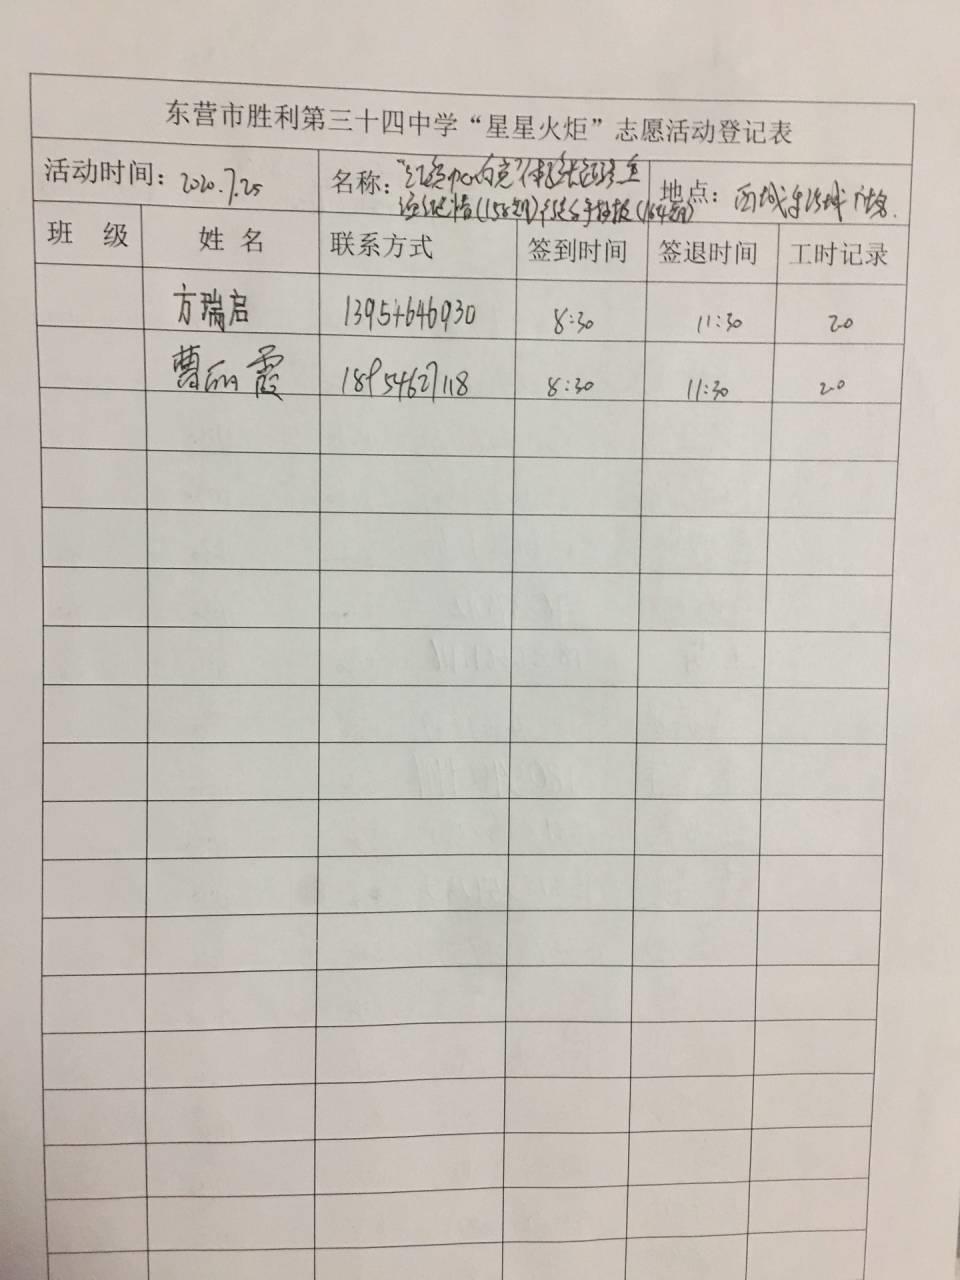 东营市胜利第三十四中学“星星火炬”志愿活动登记表
活动时间：2020.7.25 名称： 地点：西城
班 级 姓 名 联系方式 签到时间 签退时间 工时记录
方瑞启 13954646930 8:30 11:30 20
曹丽霞 18954627118 8:30 11:30 20